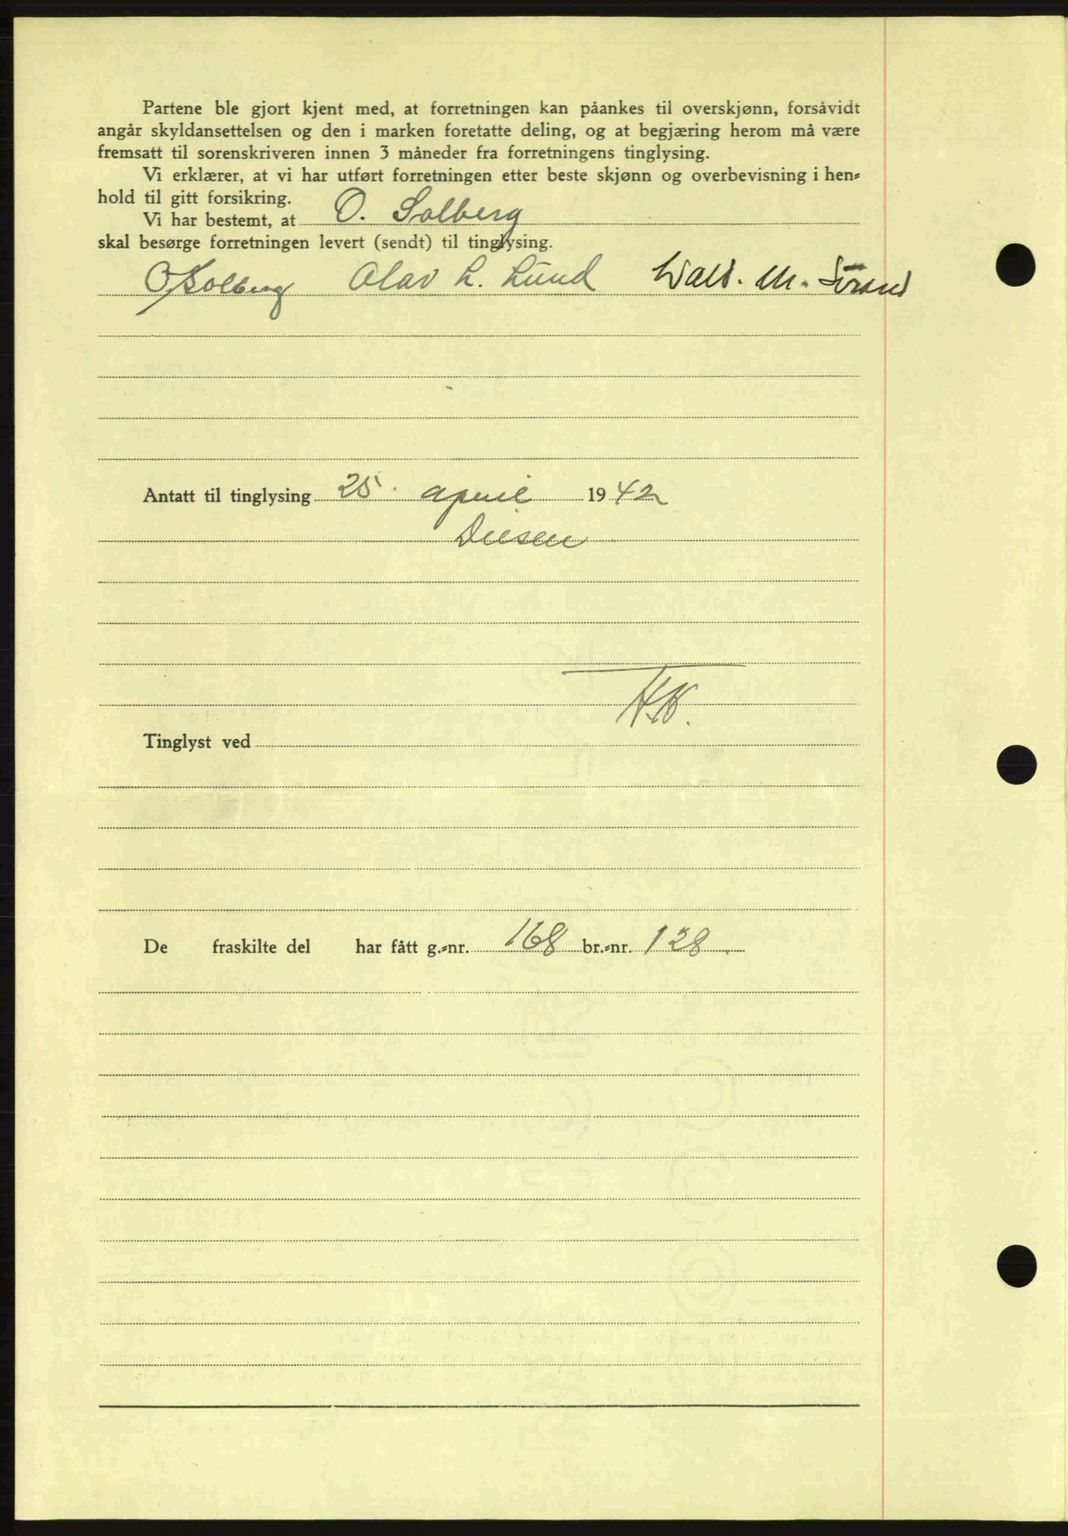 Partene ble gjort kjent med, at forretningen kan påankes til overskjønn, forsåvidt
angår skyldansettelsen og den i marken foretatte deling, og at begjæring herom må være
fremsatt til sorenskriveren innen 3 måneder fra forretningens tinglysing.
Vi erklærer, at vi har utført forretningen etter beste skjønn og overbevisning i hen-
hold til gitt forsikring.
Vi har bestemt, at O. Solberg
skal besørge forretningen levert (sendt) til tinglysing.
O Solberg Olav L. Lund Wald. M. Strand
Antatt til tinglysing 25. april 1942
Diesen
H.K.
Tinglyst ved
De fraskilte del har fått g.-nr. 168 br.-nr. 128.